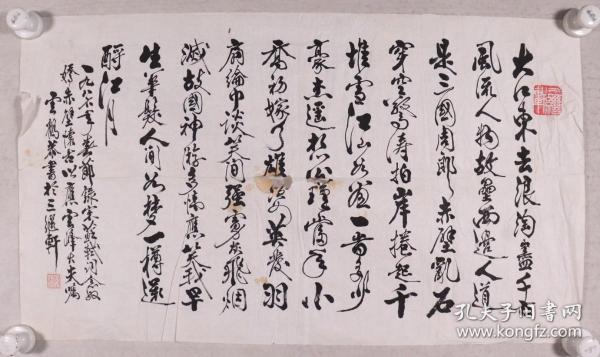 大江东去浪淘盡千古
風流人物故壘西邊人道
是三國周郎赤壁亂石
穿空驚涛拍岸捲起千
堆雪江山如畫一昔多少
豪杰遥想公瑾當年小
喬初嫁了雄姿英发羽
扇綸巾谈笑间强虜灰飛烟
滅故國神游多情應笑我早
生華髮人间如梦一樽還
酹江月
一九八六年 錄宋蘇軾
赤壁懷古以應雲峰大夫囑
書於三 軒
孔夫子旧书网
www.kongfz.com